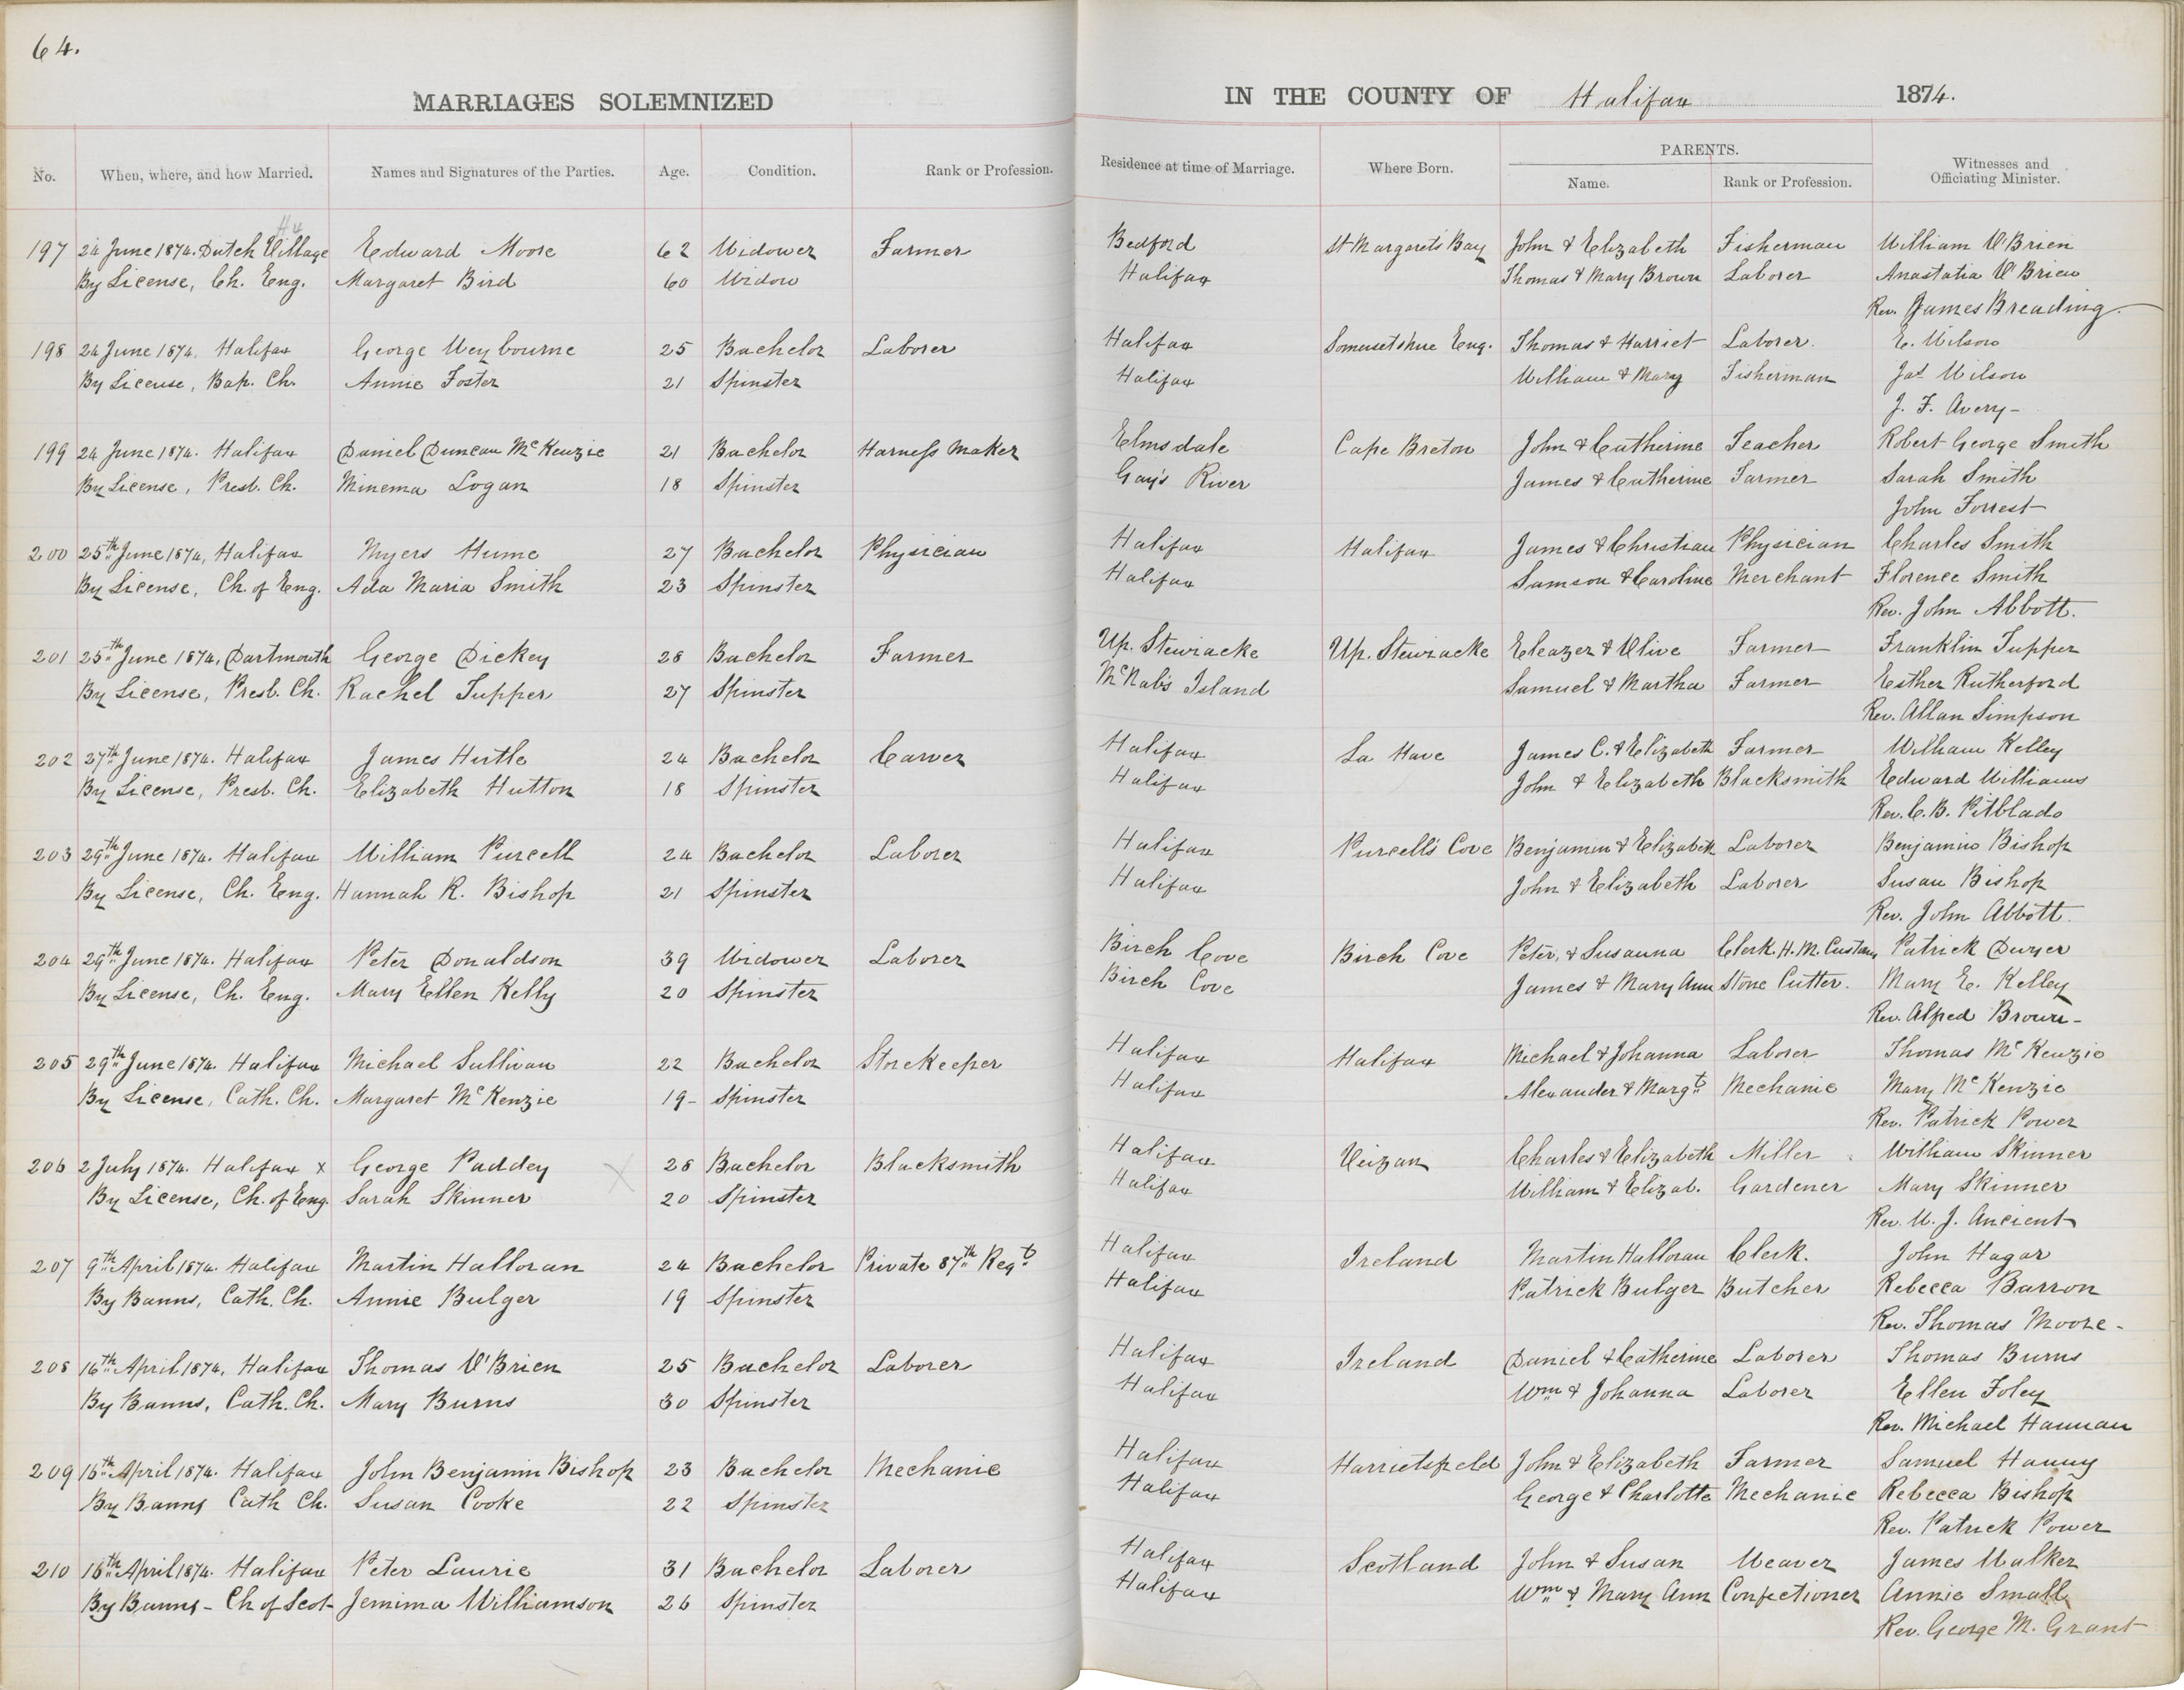 64.
MARRIAGES SOLEMNIZED IN THE COUNTY OF Halifax 1874.
No. When, where, and how Married. Names and Signatures of the Parties. Age. Condition. Rank or Profession. Residence at time of Marriage. Where Born. PARENTS. Name. Rank or Profession. Witnesses and Officiating Minister.
197 24 June 1874. Dutch Village Edward Moore 62 Widower Farmer Bedford St Margaret's Bay John & Elizabeth Fisherman William O'Brien
By License, Ch. Eng. Margaret Bird 60 Widow Halifax Thomas & Mary Brown Laborer Anastatia O'Brien
Rev. James Breading.
198 24 June 1874. Halifax George Weybourne 25 Bachelor Laborer Halifax Somersetshire Eng. Thomas & Harriet Laborer. E. Wilson
By License, Bap. Ch. Annie Foster 21 Spinster Halifax William & Mary Fisherman Jas Wilson
J. F. Avery-
199 24 June 1874. Halifax Daniel Duncan McKenzie 21 Bachelor Harness Maker Elmsdale Cape Breton John & Catherine Teacher Robert George Smith
By License, Presb. Ch. Minema Logan 18 Spinster Gay's River James & Catherine Farmer Sarah Smith
John Forrest
200 25th June 1874, Halifax Myers Hume 27 Bachelor Physician Halifax Halifax James & Christian Physician Charles Smith
By License, Ch. of Eng. Ada Maria Smith 23 Spinster Halifax Samson & Caroline Merchant Florence Smith
Rev. John Abbott.
201 25th June 1874, Dartmouth George Dickey 28 Bachelor Farmer Up. Stewiacke Up. Stewiacke Eleazer & Olive Farmer Franklin Tupper
By License, Presb. Ch. Rachel Tupper 27 Spinster McNab's Island Samuel & Martha Farmer Esther Rutherford
Rev. Allan Simpson
202 27th June 1874. Halifax James Hirtle 24 Bachelor Carver Halifax La Have James C. & Elizabeth Farmer William Kelley
By License, Presb. Ch. Elizabeth Hutton 18 Spinster Halifax John & Elizabeth Blacksmith Edward Williams
Rev. C. B. Pitblado
203 29th June 1874. Halifax William Purcell 24 Bachelor Laborer Halifax Purcell's Cove Benjamin & Elizabeth Laborer Benjamin Bishop
By License, Ch. Eng. Hannah R. Bishop 21 Spinster Halifax John & Elizabeth Laborer Susan Bishop
Rev. John Abbott.
204 29th June 1874. Halifax Peter Donaldson 39 Widower Laborer Birch Cove Birch Cove Peter, & Susanna Clerk. H. M. Customs Patrick Dwyer
By License, Ch. Eng. Mary Ellen Kelly 20 Spinster Birch Cove James & Mary Ann Stone Cutter. Mary E. Kelley
Rev. Alfred Brown-
205 29th June 1874. Halifax Michael Sullivan 22 Bachelor Storekeeper Halifax Halifax Michael & Johanna Laborer Thomas McKenzie
By License, Cath. Ch. Margaret McKenzie 19- Spinster Halifax Alexander & Margt. Mechanic Mary McKenzie
Rev. Patrick Power
206 2 July 1874. Halifax x George Paddey 28 Bachelor Blacksmith Halifax Charles & Elizabeth Miller William Skinner
By License, Ch. of Eng. Sarah Skinner 20 Spinster Halifax William & Elizab. Gardener Mary Skinner
Rev. W. J. Ancient
207 9th April 1874. Halifax Martin Halloran 24 Bachelor Private 87th Regt Halifax Ireland Martin Halloran Clerk. John Hagar
By Banns, Cath. Ch. Annie Bulger 19 Spinster Halifax Patrick Bulger Butcher Rebecca Barron
Rev. Thomas Moore-
208 16th April 1874, Halifax Thomas O'Brien 25 Bachelor Laborer Halifax Ireland Daniel & Catherine Laborer Thomas Burns
By Banns, Cath. Ch. Mary Burns 30 Spinster Halifax Wm & Johanna Laborer Ellen Foley
Rev. Michael Hannan
209 16th April 1874. Halifax John Benjamin Bishop 23 Bachelor Mechanic Halifax Harrietsfield John & Elizabeth Farmer Samuel Hanny
By Banns Cath Ch. Susan Cooke 22 Spinster Halifax George & Charlotte Mechanic Rebecca Bishop
Rev. Patrick Power
210 16th April 1874. Halifax Peter Laurie 31 Bachelor Laborer Halifax Scotland John & Susan Weaver James Walker
By Banns - Ch of Scot Jemima Williamson 26 Spinster Halifax Wm & Mary Ann Confectioner Annie Small
Rev. George M. Grant